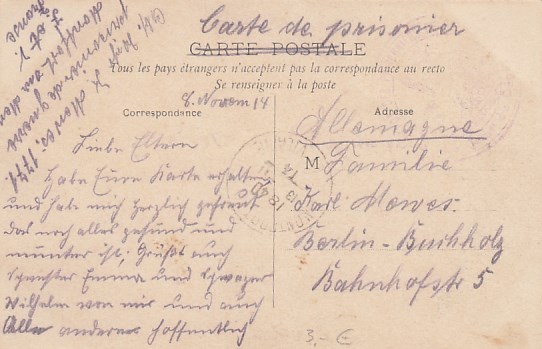 Carte de prisonier
CARTE POSTALE
Tous les pays étrangers n'acceptent pas la correspondance au recto
Se renseigner à la poste
Correspondance
Adresse
8. Novem 14
Liebe Eltern
Habe Eure Karte erhalten
und hab mich herzlich gefreut
das noch alles gesund und
munter ist. Grüßt auch
Schwester Emma und Schwager
Wilhelm von mir und auch
Alle anderen hoffentlich
Allemagne
M Familie
Karl Mewes
Berlin-Buchholz
Bahnhofstr 5
prisonnier de guerre
Montfort sur Meu
I. et V.
France
3.- €